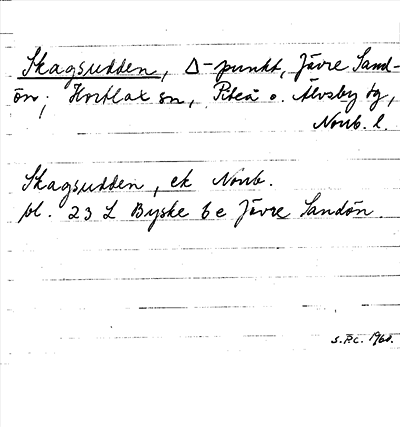 Skagsudden, Δ-punkt, Jävre Sand-
ön; Hortlax sn, Piteå o. Älvsby tg,
Norrb. l.
Skagsudden, ek Norrb.
bl. 23 L Byske 6 e Jävre Sandön.
S.P.C. 1960.